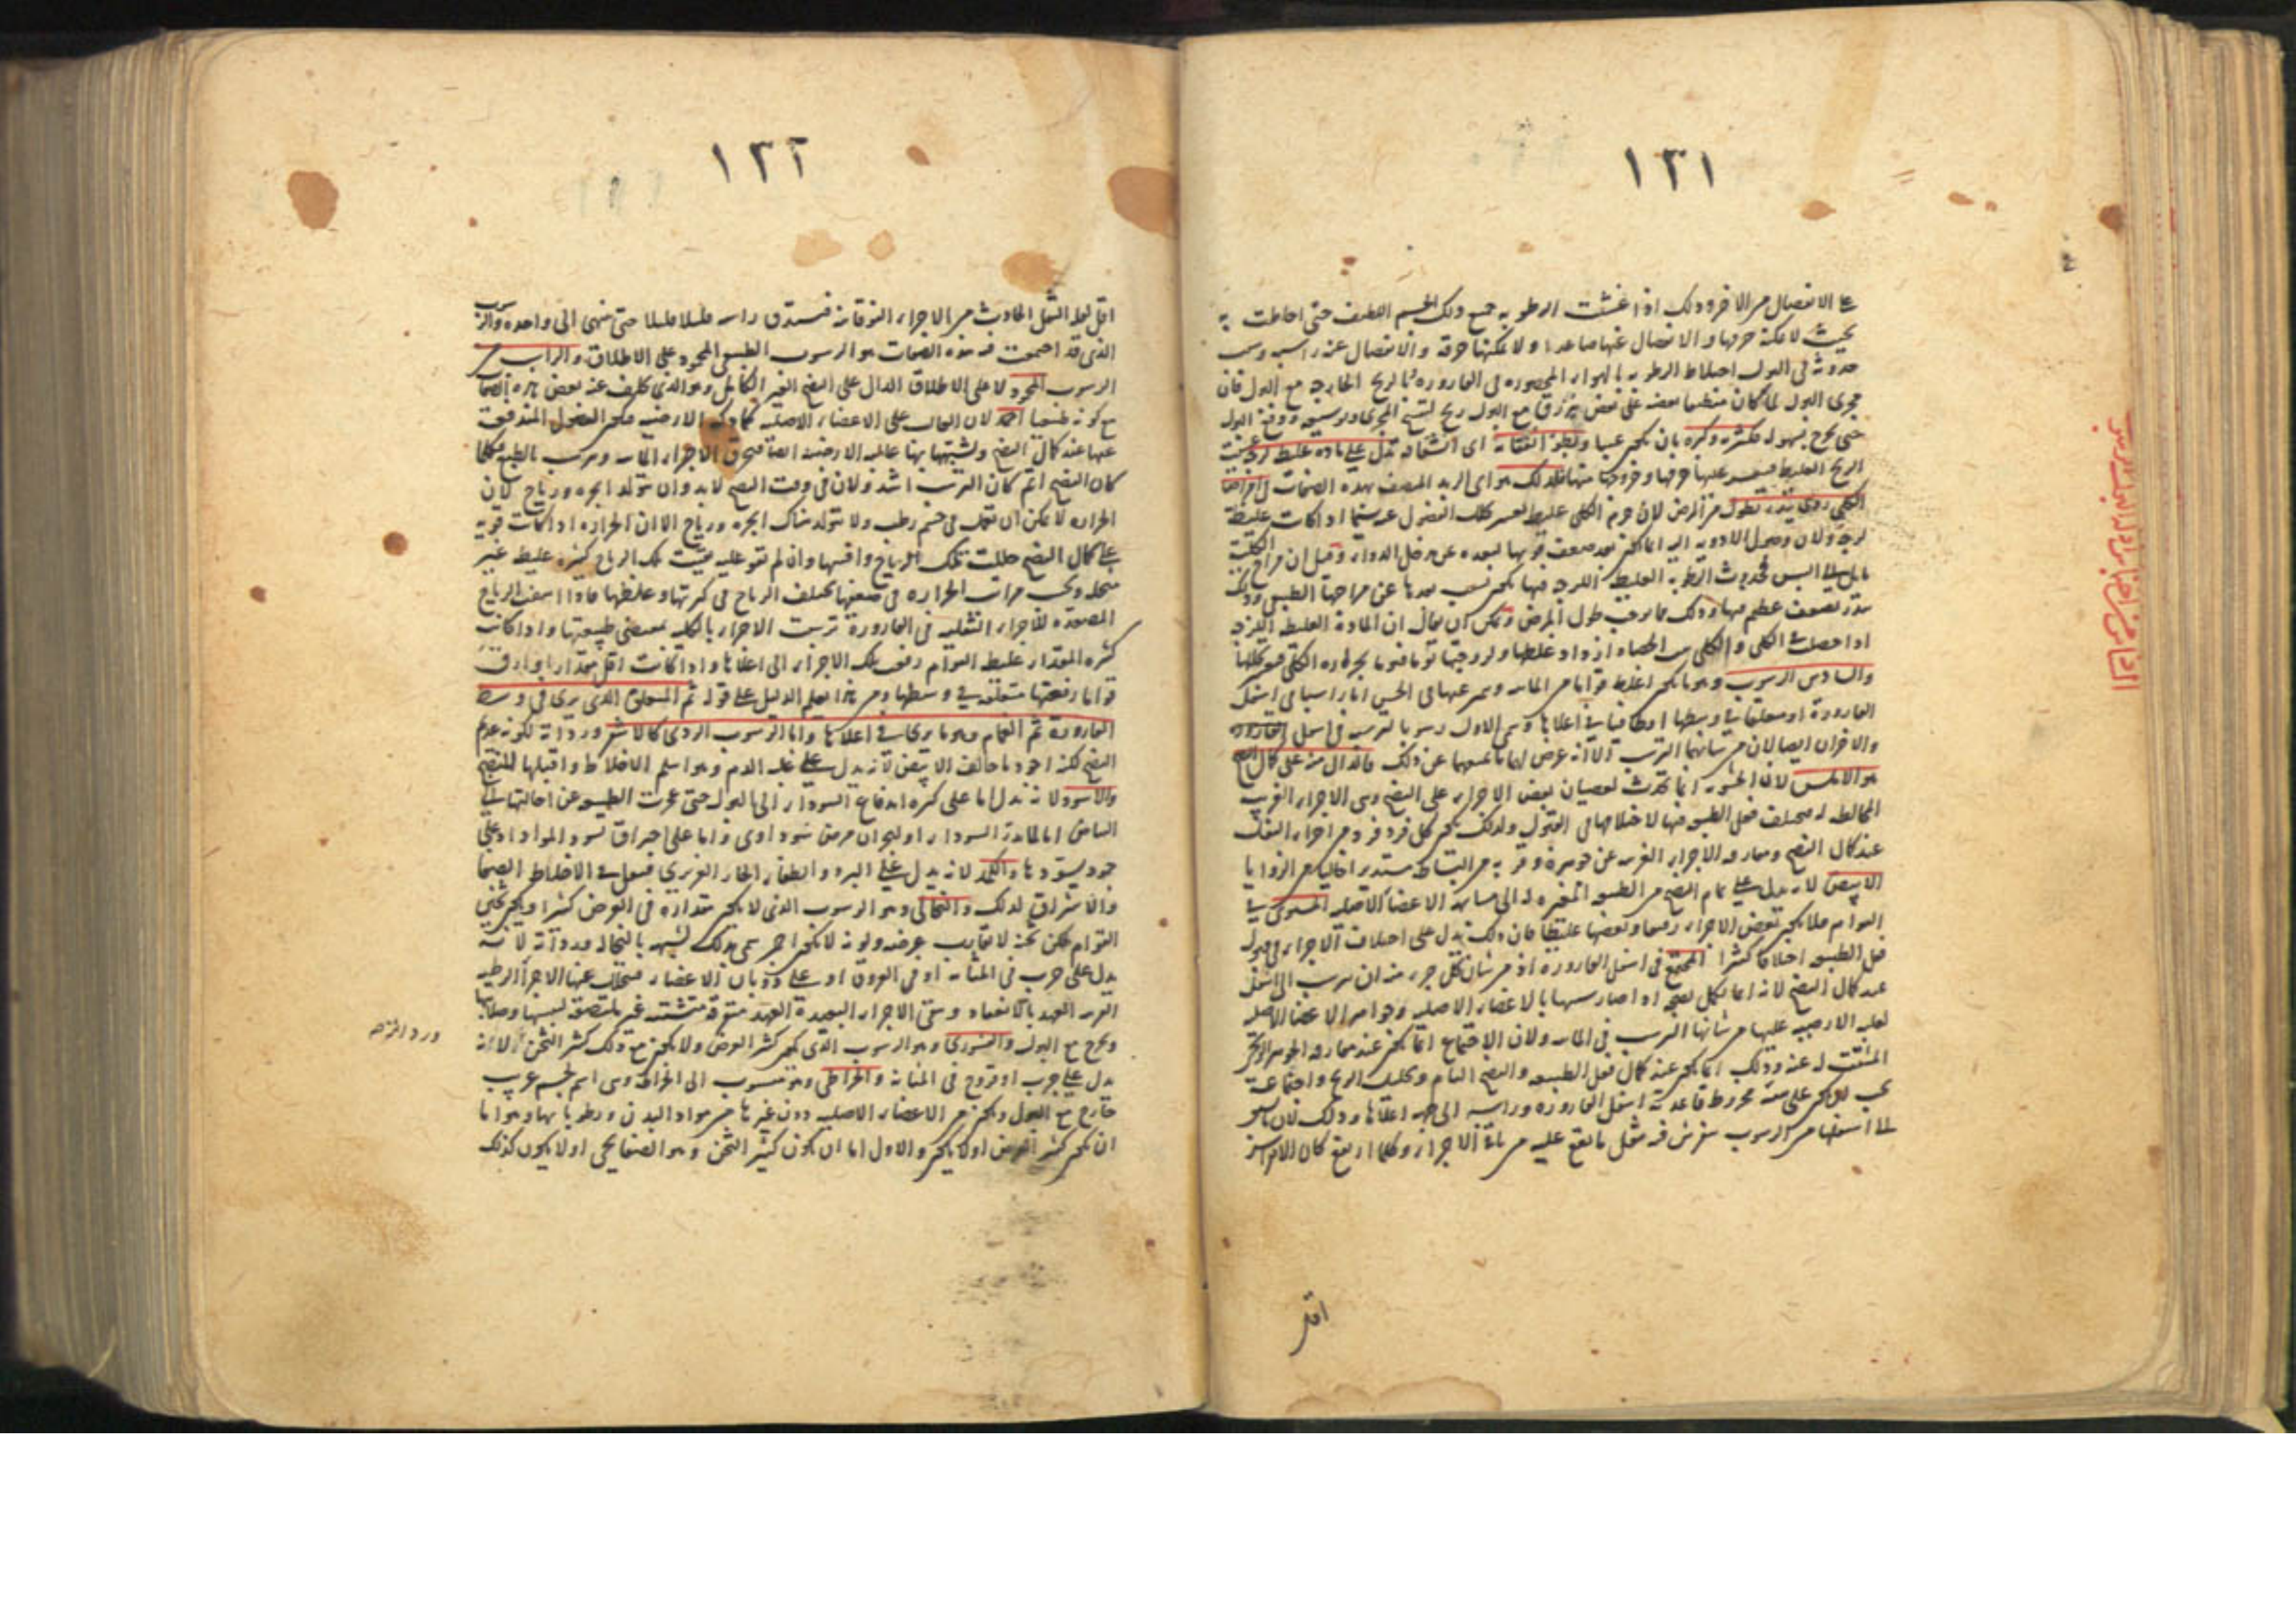 ١٢١
على الانفصال من الاخر وذلك اذا غشت الرطوبة جميع ذلك الجسم اللطيف حتى احاطت به
بحيث لا يمكنه خرقها والانفصال عنها صاعدا ولا يمكنها خرقه والانفصال عنه راسبة وسبب
حدوثه في البول اختلاط الرطوبة بالهواء المحصورة في القارورة الريح الخارجة مع البول فان
مجرى البول لما كان منطبقا بعضه على بعض ينزرق مع البول ريح لتفتح المجرى وتوسيعه ودفع البول
حتى يخرج بسهولة فكثرته وكبره بان يكون عببا وبطؤ انفقائه اى انشقاقه تدل على مادة غليظة لزجة
الريح الغليظ فيعسر عليها خرقها وخروجها منها فلذلك هو اى الزبد المتصف بهذه الصفات في امراض
الكلى ردى ينذر بطول من المرض لان جرم الكلى غليظ يعسر تحلل الفضول عنه سيما اذا كانت غليظة
لزجة ولان وصول الادوية اليها انما يكون بعد ضعف قوتها لبعده عن مدخل الدواء وقيل ان مزاج الكلية
مايل الى اليبس فحدوث الرطوبة الغليظة اللزجة فيها يكون بسبب بعدها عن مزاجها الطبيعى وذلك
ينذر بضعف عظيم فيها وذلك مما يوجب طول المرض ويمكن ان يقال ان المادة الغليظة اللزجة
اذا حصلت في الكلى
والسادس الرسوب وهو ما يكون اغلظ قواما من المائية ويتميز عنها في الحس اما راسبا في اسفل
القارورة او متعلقا في وسطها او طافيا في اعلاها وسمى الاول رسوبا لترسبه في اسفل القارورة
والاخران ايضا لان من شانهما الترسب الا انه عرض لهما ما يمنعهما عن ذلك فالدال منه على كمال النضج
هو الاملس لان الخشونة انما تحدث لعصيان بعض الاجزاء على النضج وهى الاجزاء الغريبة
المخالطة له فيختلف فعل الطبيعة فيها لاختلافها في القبول ولذلك يكون كل فرد فرد من اجزاء الثفل
عند كمال النضج
الابيض لانه يدل على تمام النضج من الطبيعة المغيرة له الى مشابهة الاعضاء الاصلية المستوى في
القوام فلا يكون بعض الاجزاء رقيقا وبعضها غليظا فان ذلك يدل على اختلاف الاجزاء في قبول
فعل الطبيعة اختلافا كثيرا المجتمع في اسفل القارورة اذ من شان كل جزء منه ان يرسب الى اسفل
عند كمال النضج لانه انما يكمل نضجه اذا صار شبيها بالاعضاء الاصلية وجواهر الاعضاء الاصلية
لغلبة الارضية عليها من شانها الترسب في الماء ولان الاجتماع انما يكون عند مفارقة الجوهر الريحى
المشتت له عنه وذلك انما يكون عند كمال فعل الطبيعة والنضج التام وتحليل الريح واجتماعه
يجب ان يكون على هيئة مخروط قاعدته اسفل القارورة وراسه الى جهة اعلاها وذلك لان ما سبق
الى اسفلها من الرسوب ينفرش فيه بثقل ما يقع عليه من باقى الاجزاء وكلما ارتفع كان الامر
اقل
١٢٢
اقل لقلة الثقل الحادث من الاجزاء الفوقانية فيستدق راسه قليلا قليلا حتى ينتهى الى واحدة والرسوب
الذى قد اجتمعت فيه هذه الصفات هو الرسوب الطبيعى المحمود على الاطلاق والراسب من
الرسوب المحمود لا على الاطلاق الدال على النضج الغير الكامل وهو الذى تخلف عنه بعض هذه الصفات
مع كونه طبيعيا احمد لان الغالب على الاعضاء الاصلية كما ذكر الارضية فيكون الفضول المندفعة
عنها عند كمال النضج وتشبهها بها غالبة الارضية ايضا فتخرق الاجزاء المائية وترسب بالطبع فكلما
كان النضج اتم كان الترسب اشد ولان في وقت النضج لابد وان تتولد ابخرة ورياح لان
الحرارة لا يمكن ان تعمل في جسم رطب ولا تتولد هناك ابخرة ورياح الا ان الحرارة اذا كانت قوية
على كمال النضج حللت تلك الرياح وافنتها وان لم تقو عليه بقيت تلك الرياح كثيرة غليظة غير
متحللة وبحسب مراتب الحرارة في ضعفها تختلف الرياح في كثرتها وغلظها فاذا انتفت الرياح
المصعدة للاجزاء الثفلية في القارورة ترسبت الاجزاء بالكلية بمقتضى طبيعتها واذا كانت
كثيرة المقدار غليظة القوام رفعت تلك الاجزاء الى اعلاها واذا كانت اقل مقدارا وارق
قواما رفعتها متعلقة في وسطها ومن هذا يعلم الدليل على قوله ثم المتعلق الذى يرى في وسط
القارورة ثم الغمام وهو ما يرى في اعلاها واما الرسوب الردى فكالاشقر ورداءته لكونه عديم
النضج لكنه اجود ما خالف الابيض لانه يدل على غلبة الدم وهو اسلم الاخلاط واقبلها للنضج
والاسود لانه يدل اما على كثرة اندفاع السوداء الى البول حتى عجزت الطبيعة عن احالتها الى
البياض اما لمادة السوداء او لبحران مرض سوداوى واما على احتراق يسود المواد او على
جمود يسودها والكمد لانه يدل على البرد وانطفاء الحار الغريزى
والاشراق لذلك والنخالى وهو الرسوب الذى لا يكون مقداره في العرض كثيرا ويكون ثخين
القوام
يدل على جرب في المثانة او في العروق او على ذوبان الاعضاء فتتحلل عنها الاجزاء الرطبة
القريبة العهد بالانعقاد وتبقى الاجزاء البعيدة العهد متفرقة متشتتة غير ملتصقة ليبسها وصلابتها
وتخرج مع البول والقشورى وهو الرسوب الذى يكون كثير العرض ولا يكون مع ذلك كثير الثخن لانه
يدل على جرب او قروح في المثانة والخراطى وهو منسوب الى الخراطة وهى اسم لجسم غريب
خارج مع البول ويكون من الاعضاء الاصلية دون غيرها من مواد البدن ورطوباتها وهو اما
ان يكون كثير العرض اولا يكون والاول اما ان يكون كثير الثخن وهو الصفايحى اولا يكون كذلك